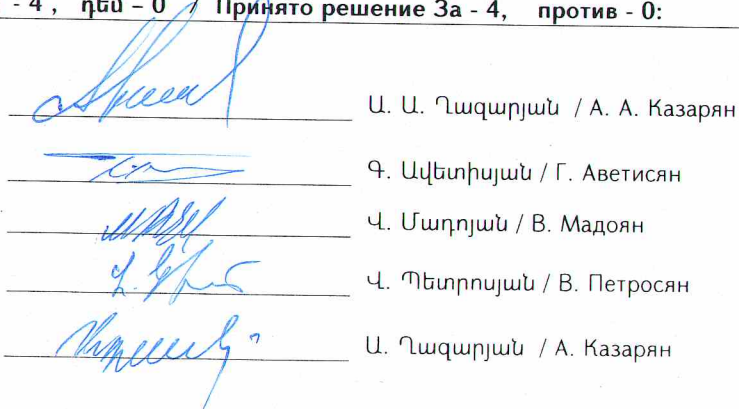 - 4 , դեմ – 0 / Принято решение За - 4, против - 0:
Ա. Ա. Ղազարյան / А. А. Казарян
Գ. Ավետիսյան / Г. Аветисян
Վ. Մադոյան / В. Мадоян
Վ. Պետրոսյան / В. Петросян
Ա. Ղազարյան / А. Казарян